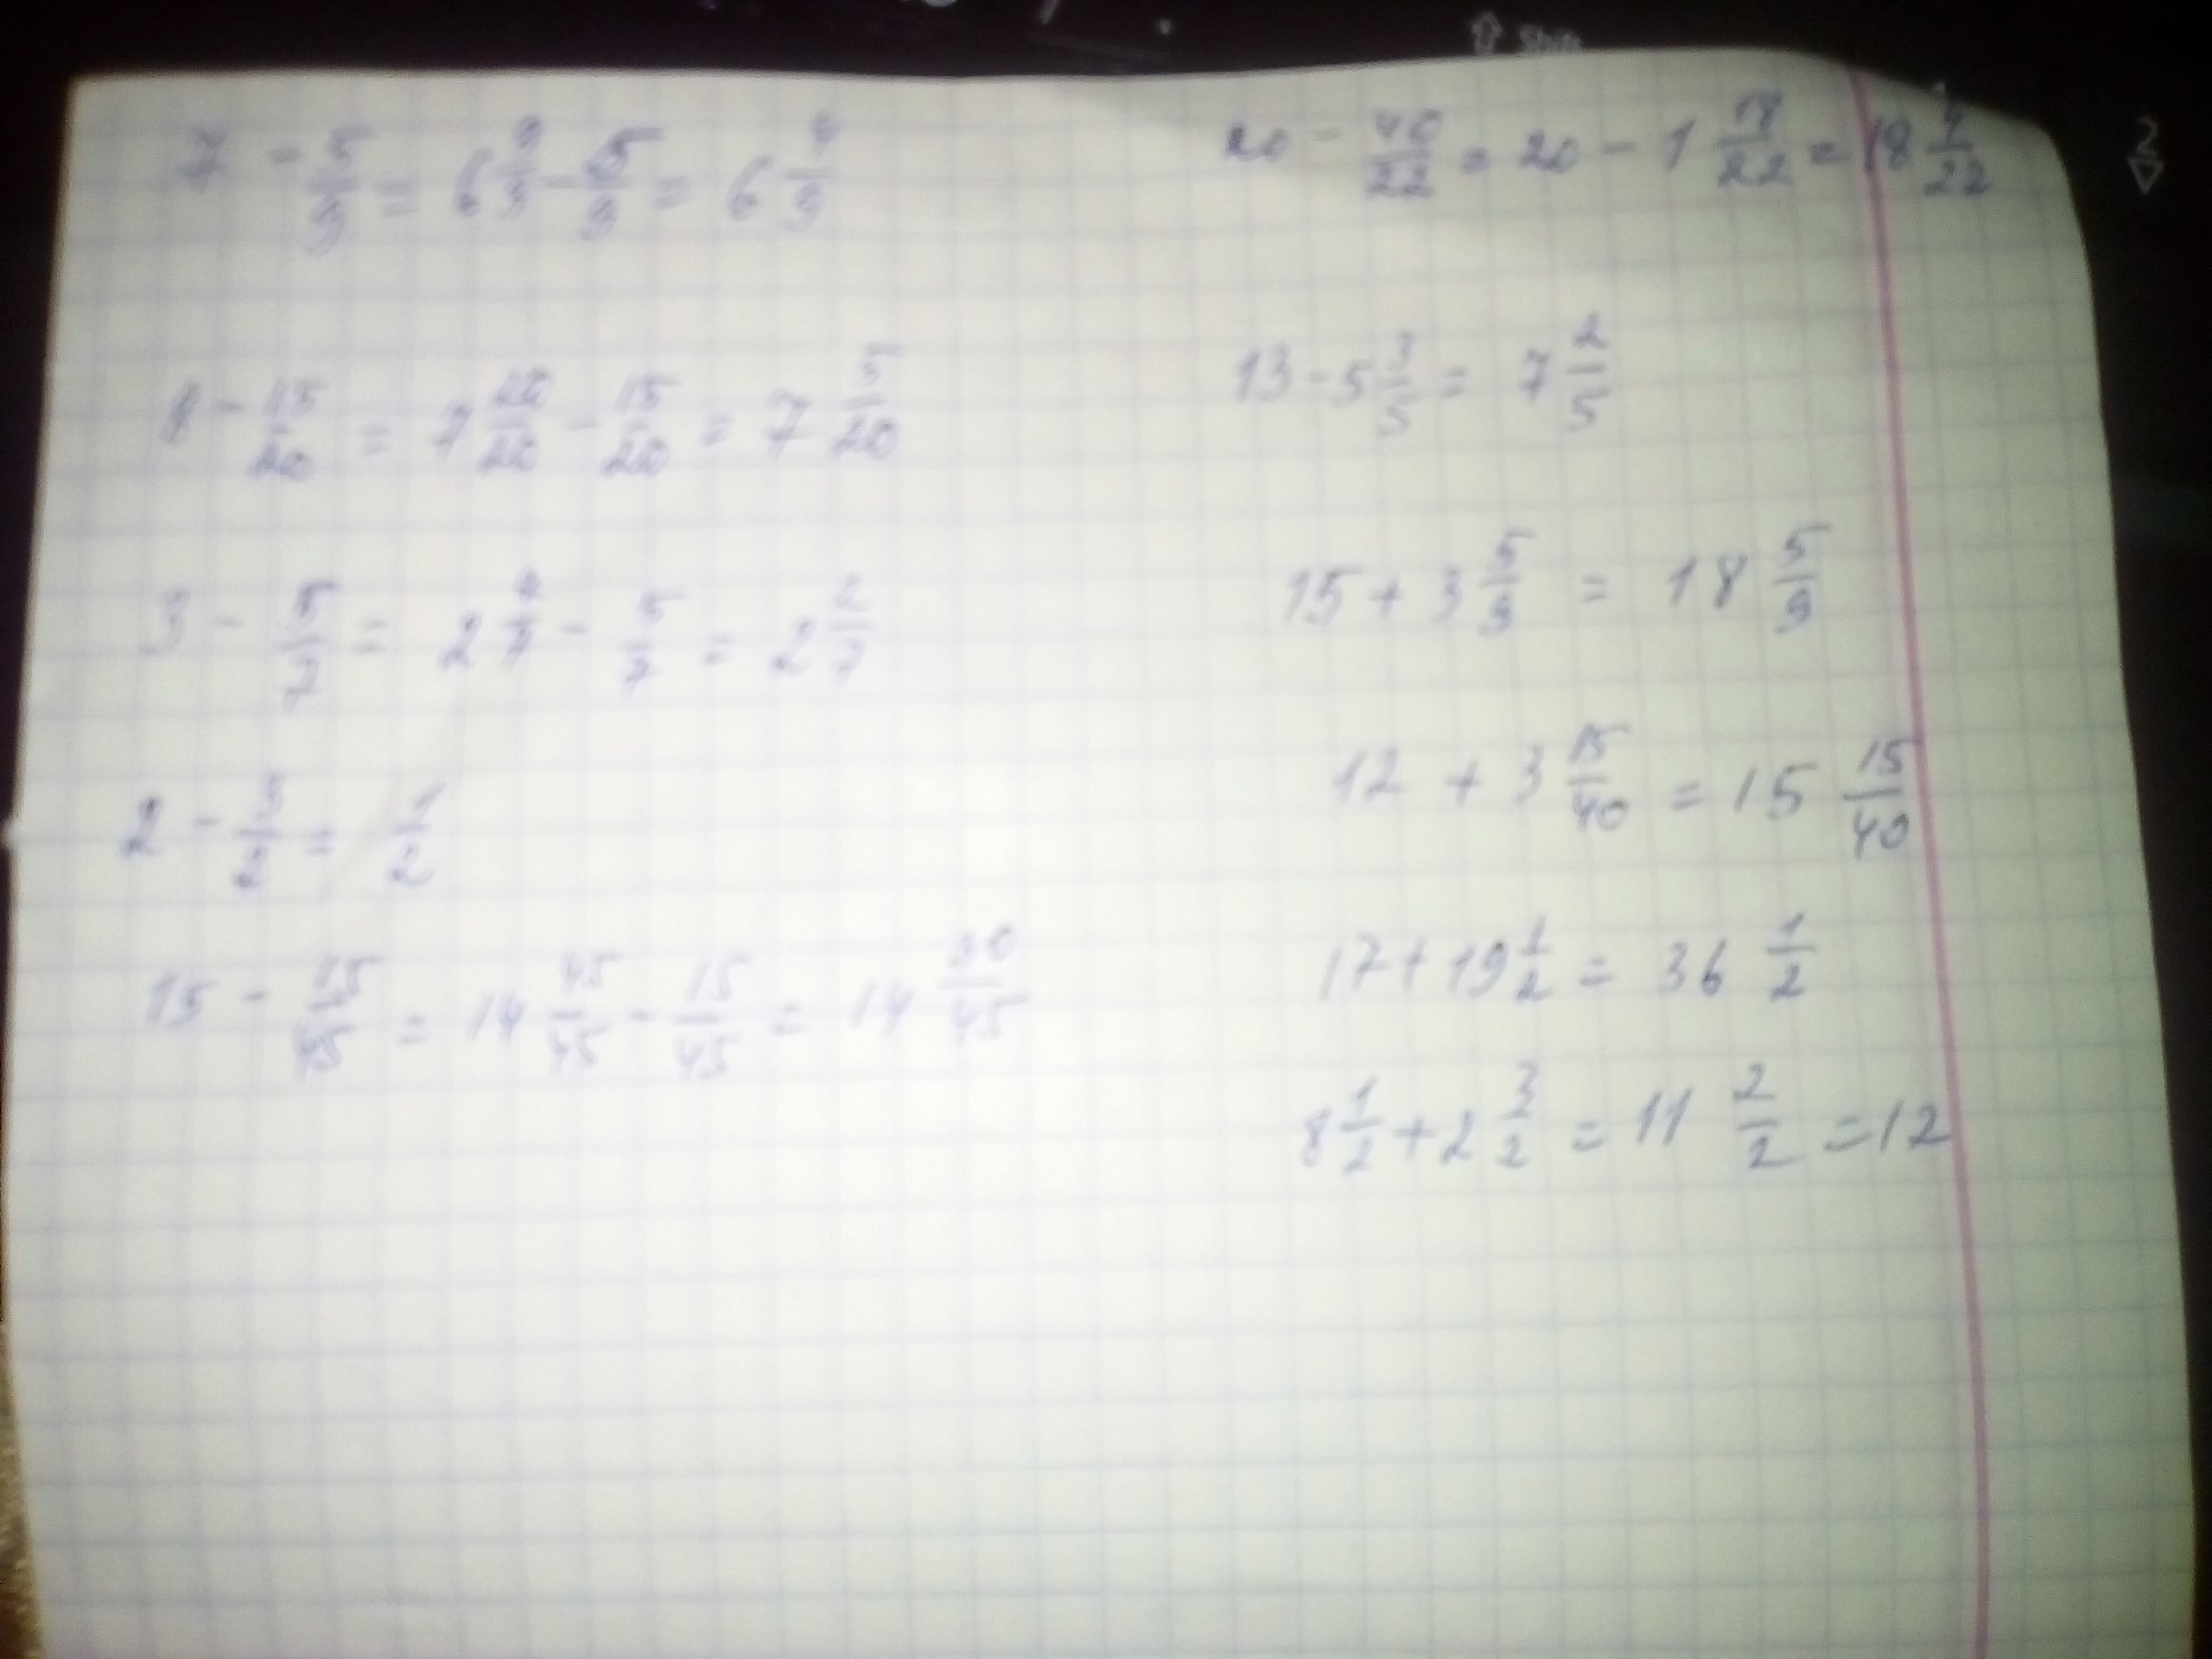 7 - 5/9 = 6 9/9 - 5/9 = 6 4/9
8 - 15/20 = 7 20/20 - 15/20 = 7 5/20
3 - 5/7 = 2 7/7 - 5/7 = 2 2/7
2 - 3/2 = 1/2
15 - 15/45 = 14 45/45 - 15/45 = 14 30/45
20 - 40/22 = 20 - 1 18/22 = 18 4/22
13 - 5 3/5 = 7 2/5
15 + 3 5/9 = 18 5/9
12 + 3 15/40 = 15 15/40
17 + 19 1/2 = 36 1/2
8 1/2 + 2 3/2 = 11 2/2 = 12
⇧ Shift
2